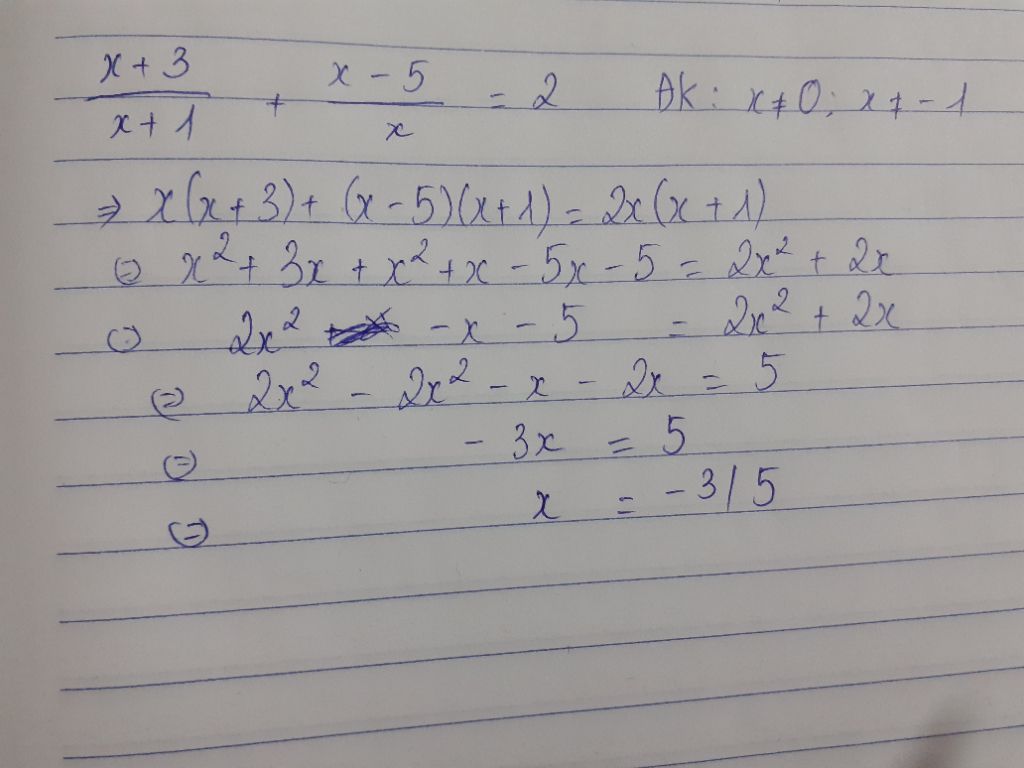 x + 3 / x + 1 + x - 5 / x = 2 ĐK: x ≠ 0; x ≠ -1
⇒ x(x + 3) + (x - 5)(x + 1) = 2x(x + 1)
⇔ x² + 3x + x² + x - 5x - 5 = 2x² + 2x
⇔ 2x² - x - 5 = 2x² + 2x
⇔ 2x² - 2x² - x - 2x = 5
⇔ - 3x = 5
⇔ x = - 3/5